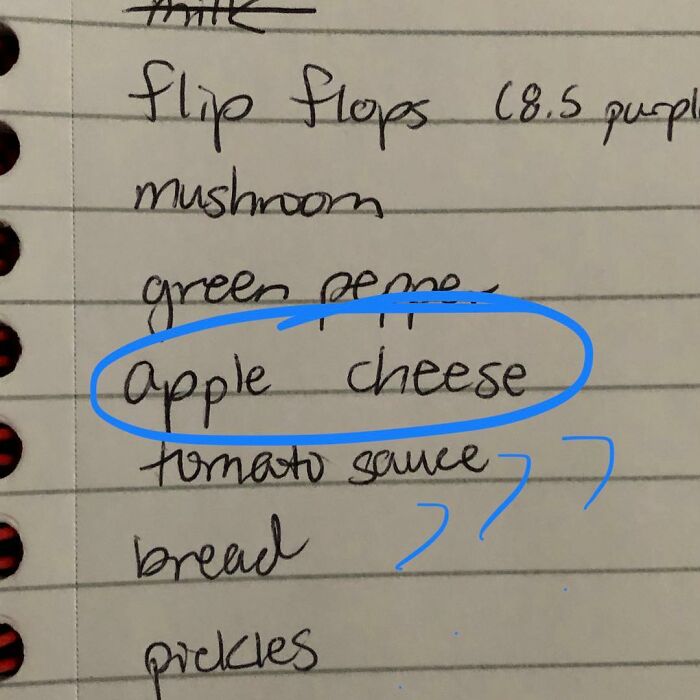 milk
flip flops (8.5 purpl
mushroom
green pepper
apple cheese
tomato sauce
bread
pickles
???